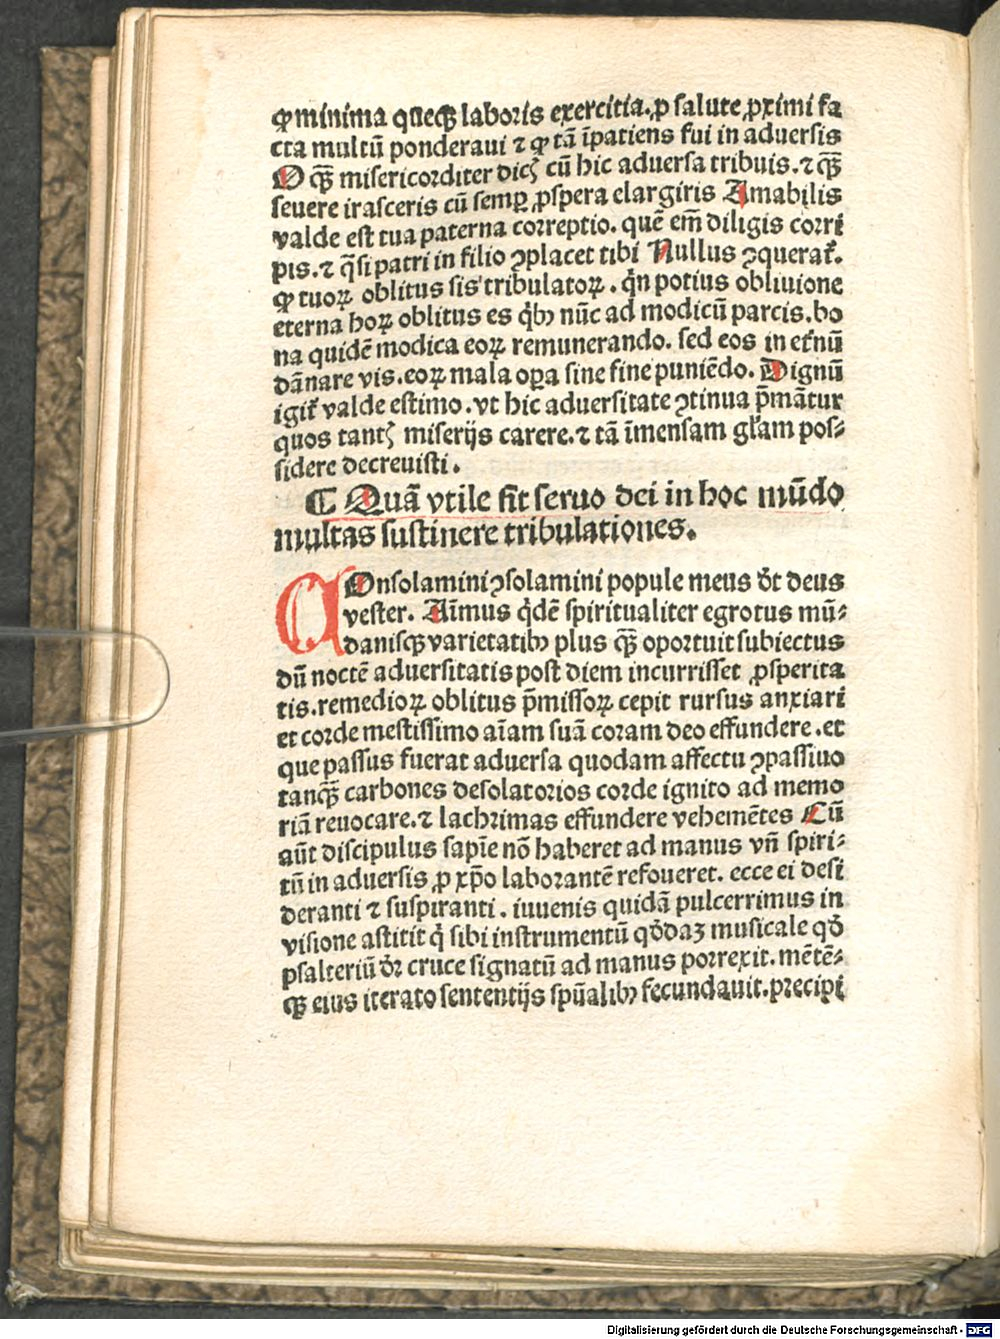 ꝙ minima queqꝫ laboris exercitia. ꝓ salute ꝓximi fa
cta multū ponderaui ⁊ ꝙ tā īpatiens fui in aduersis
O qꝫ̄ misericorditer dicꝭ cū hic aduersa tribuis. ⁊ qꝫ̄
seuere irasceris cū semꝑ ꝓspera elargiris Amabilis
valde est tua paterna correptio. quē em̄ diligis corri
pis. ⁊ q̄si patri in filio ꝯplacet tibi Nullus ꝯquerat᷑.
ꝙ tuoꝝ oblitus sis tribulatoꝝ. qͥn potius obliuione
eterna hoꝝ oblitus es qͥbꝫ nūc ad modicū parcis. bo
na quidē modica eoꝝ remunerando. sed eos in et᷑nū
dānare vis. eoꝝ mala oꝑa sine fine puniēdo. Dignū
igit᷑ valde estimo. vt hic aduersitate ꝯtinua p̄mātur
quos tantꝭ miserijs carere. ⁊ tā īmensam gl̄am pos⸗
sidere decreuisti.
¶ Quā vtile sit seruo dei in hoc mūdo
multas sustinere tribulationes.
COnsolamini ꝯsolamini popule meus dt̄ deus
vester. Aīmus qͥdē spiritualiter egrotus mū⸗
danisqꝫ varietatibꝫ plus qꝫ̄ oportuit subiectus
dū noctē aduersitatis post diem incurrisset ꝓsperita
tis. remedioꝝ oblitus p̄missoꝝ cepit rursus anxiari
et corde mestissimo aīam suā coram deo effundere. et
que passus fuerat aduersa quodam affectu ꝯpassiuo
tanqꝫ̄ carbones desolatorios corde ignito ad memo
riā reuocare. ⁊ lachrimas effundere vehemētes Cū
aūt discipulus sapīe nō haberet ad manus vn̄ spiri⸗
tū in aduersis ꝓ xp̄o laborantē refoueret. ecce ei desi
deranti ⁊ suspiranti. iuuenis quidā pulcerrimus in
visione astitit qͥ sibi instrumentū qd̄daꝫ musicale qd̄
psalteriū dr̄ cruce signatū ad manus porrexit. mētē⸗
qꝫ eius iterato sententijs spūalibꝫ fecundauit. precipi
Digitalisierung gefördert durch die Deutsche Forschungsgemeinschaft - DFG